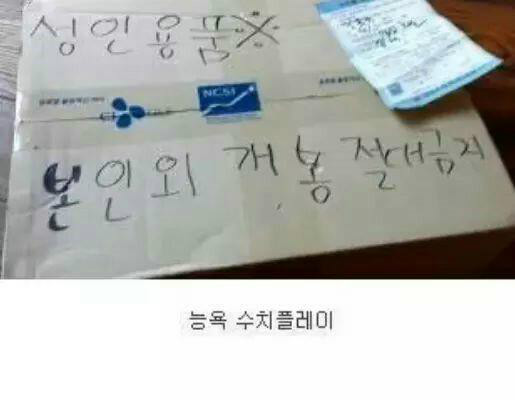 성인용품※
NCSI
본인외 개.봉 절대금지
능욕 수치플레이